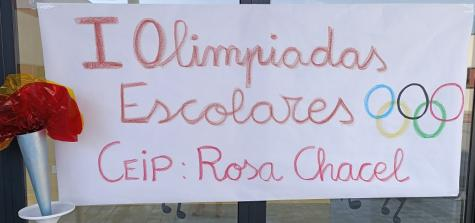 I Olimpiadas
Escolares
CEIP: Rosa Chacel